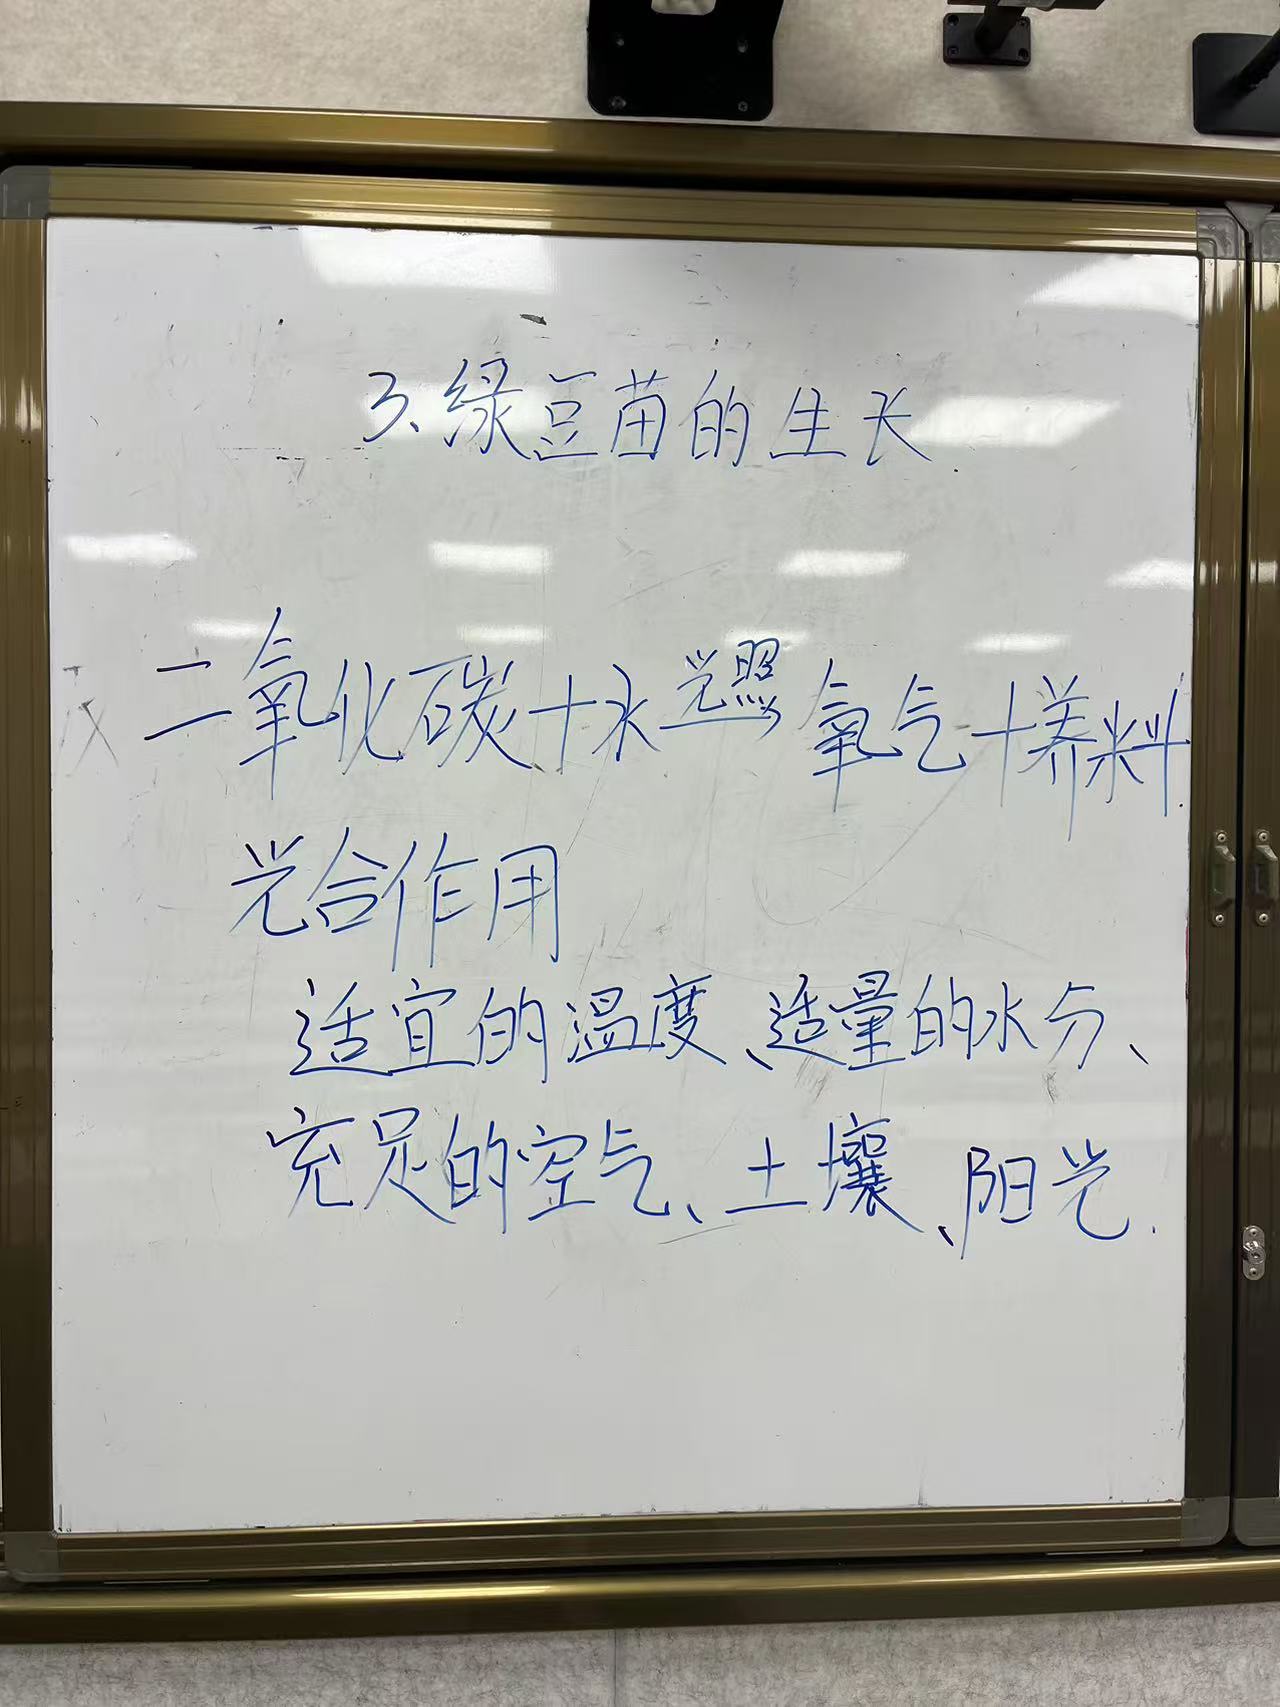 3、绿豆苗的生长
二氧化碳+水 光照 氧气+养料.
光合作用
适宜的温度、适量的水分、
充足的空气、土壤、阳光.